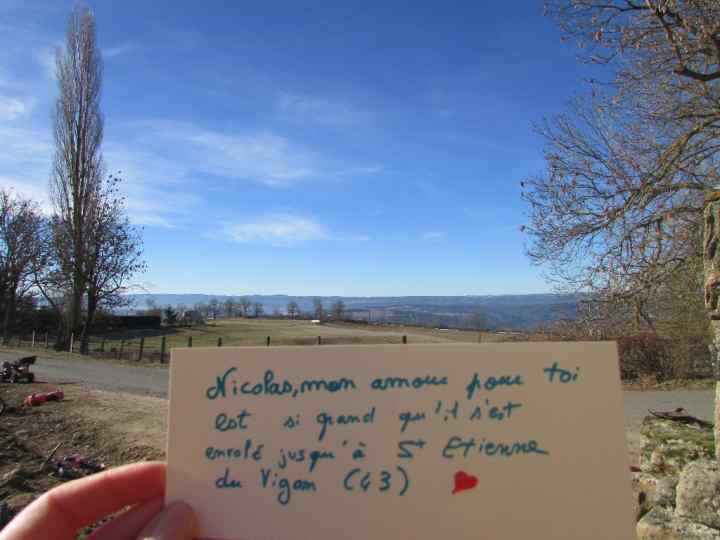 Nicolas, mon amour pour toi
est si grand qu'il s'est
envolé jusqu'à St Etienne
du Vigan (43)